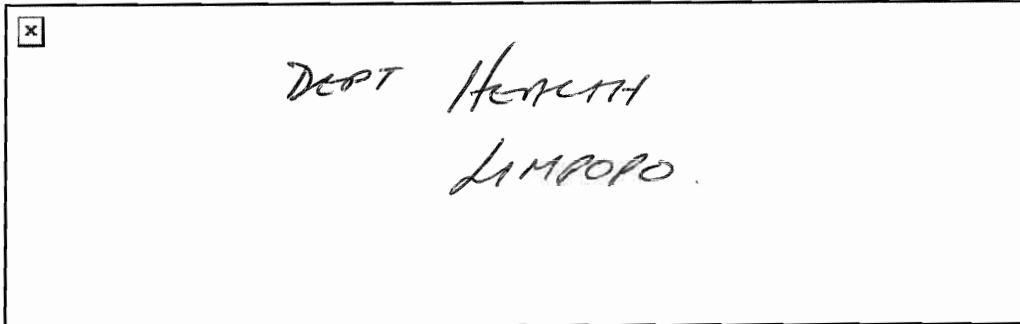 DEPT HEALTH
LIMPOPO.